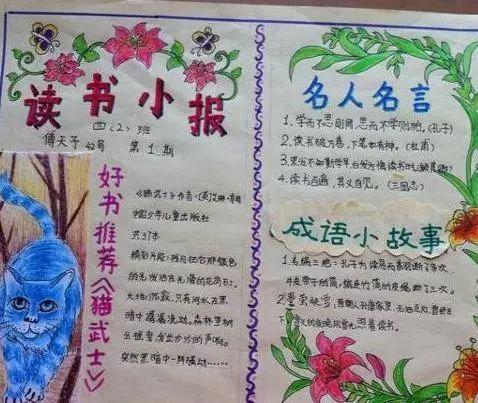 读书小报
四（2）班
傅天予 42号 第1期
好书推荐《猫武士》
《猫武士》作者：(英)艾琳·亨特
中国少年儿童出版社
共37本
精彩片段：残月把它那银色
的光
大地沉寂，只有河水在黑
暗中潺潺流动。森林里树
突然黑暗中一阵骚动……
名人名言
1、学而不思则罔，思而不学则殆。(孔子)
2、读书破万卷，下笔如有神。(杜甫)
3、黑发不知勤学早，白发方悔读书迟。(颜真卿)
4、读书百遍，其义自见。(三国志)
成语小故事
1、韦编三绝：孔子为读易而翻断了多次
牛皮带子的简，
2、
天的夜晚